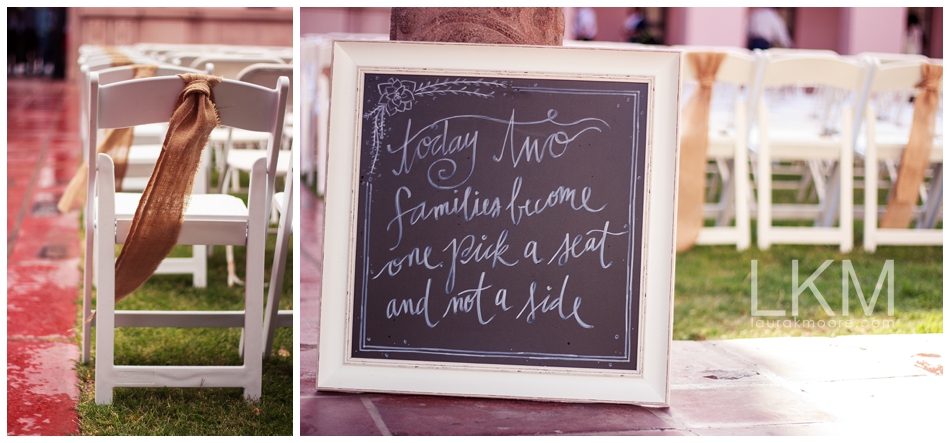 today two
families become
one pick a seat
and not a side
LKM
laurakmoore.com